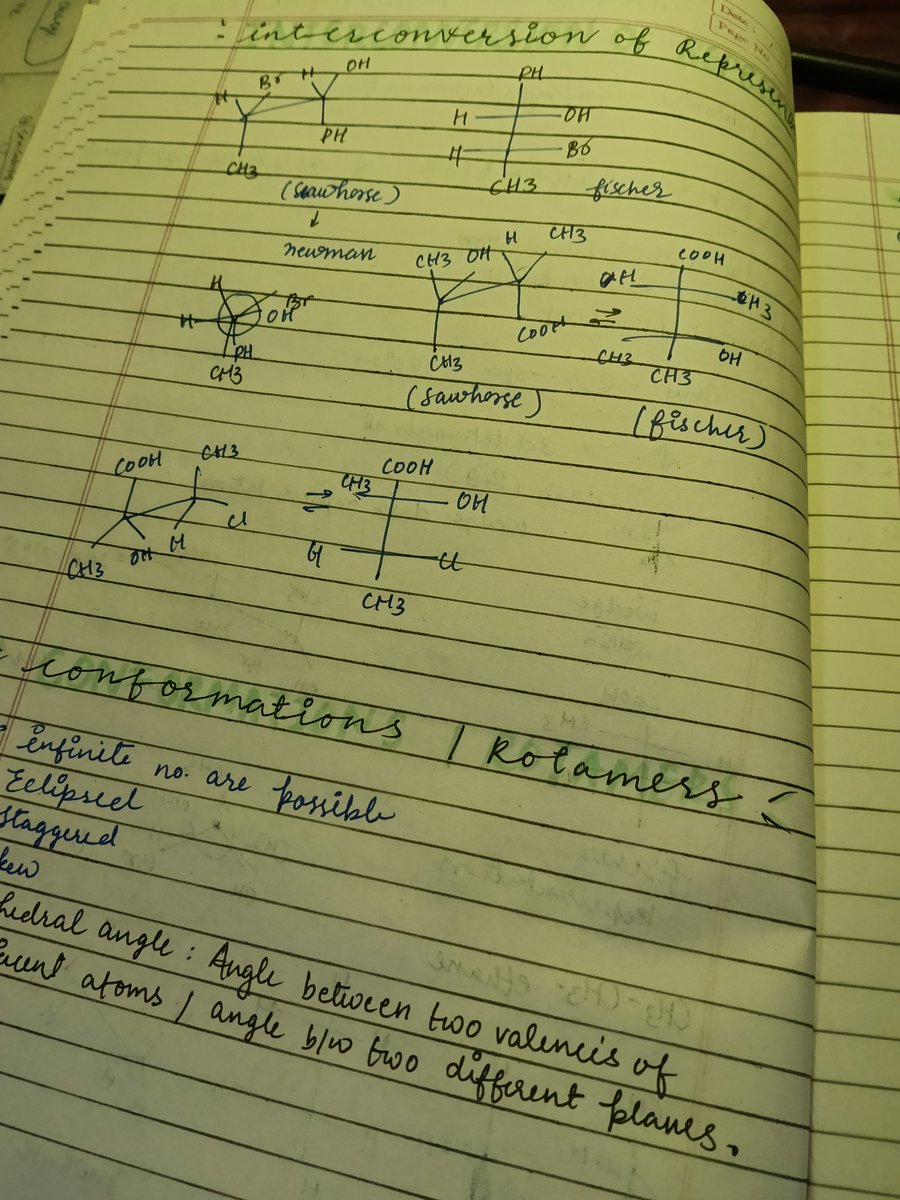 : interconversion of Represen
Date :
Page No
H Br H OH
PH
CH3
(sawhorse)
PH
H OH
H Br
CH3 fischer
newman
H
Br
H OH
PH
CH3
CH3 OH H CH3
COOH
CH3
(sawhorse)
⇌
COOH
H CH3
CH3 OH
CH3
(fischer)
COOH CH3
Cl
CH3 OH H
⇌
COOH
CH3 OH
H Cl
CH3
conformations / Rotamers
infinite no. are possible
Eclipsed
staggered
kew
hedral angle : Angle between two valencis of
acent atoms / angle b/w two different planes.